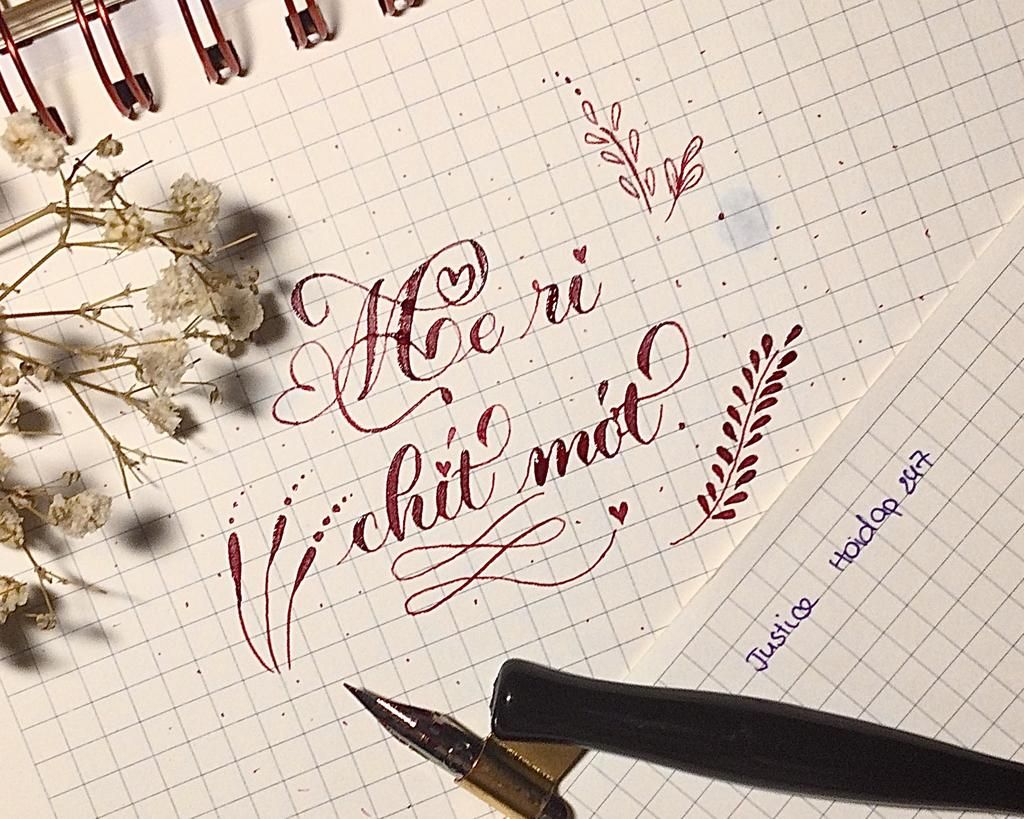 He ri
chít mót.
Justice Hoidap 247